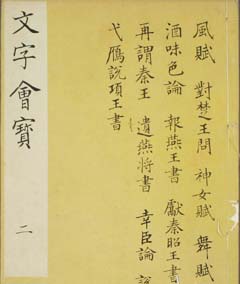 文字會寶
二
風賦 對楚王問 神女賦 舞賦
酒味色論 報燕王書 獻秦昭王書
再謂秦王 遺燕將書 幸臣論
弋鴈說項王書